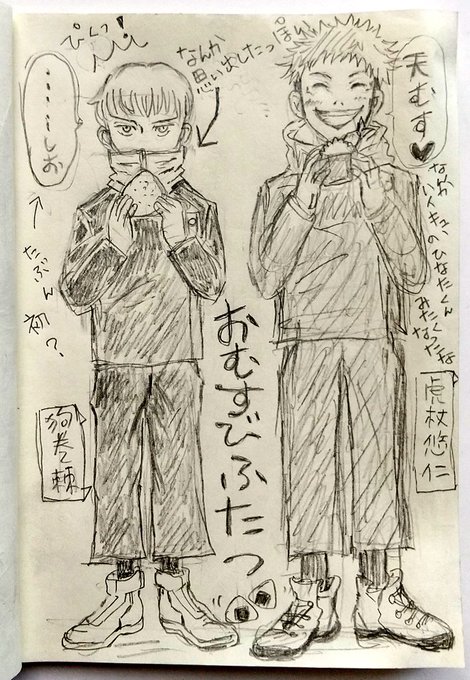 天むす♥
なんか
ハイキューの
ひなたくん
みたく
なったな
虎杖悠仁
ぽい
なんか
思い出したっ
ぴくっ!
……しお
たぶん初?
狗巻棘
おむすびふたつ